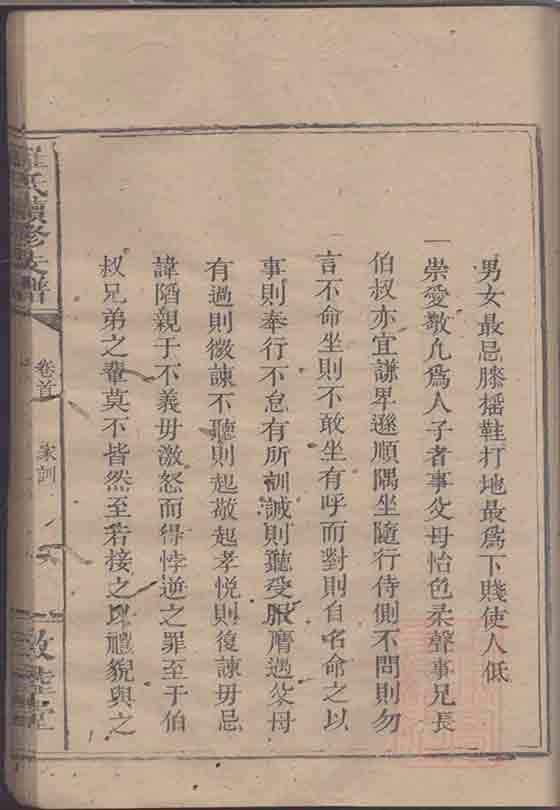 男女最忌膝搖鞋打地最爲下賤使人低
一崇愛敬凢爲人子者事父母怡色柔聲事兄長
伯叔亦宜謙卑遜順隅坐隨行侍側不問則勿
言不命坐則不敢坐有呼而對則自名命之以
事則奉行不怠有所訓誡則聽受服膺遇父母
有過則微諫不聽則起敬起孝悦則復諫毋忌
諱陷親于不義毋激怒而得悖逆之罪至于伯
叔兄弟之輩莫不皆然至若接之以禮貌與之
氏續修支譜
卷首
家訓
敦 堂